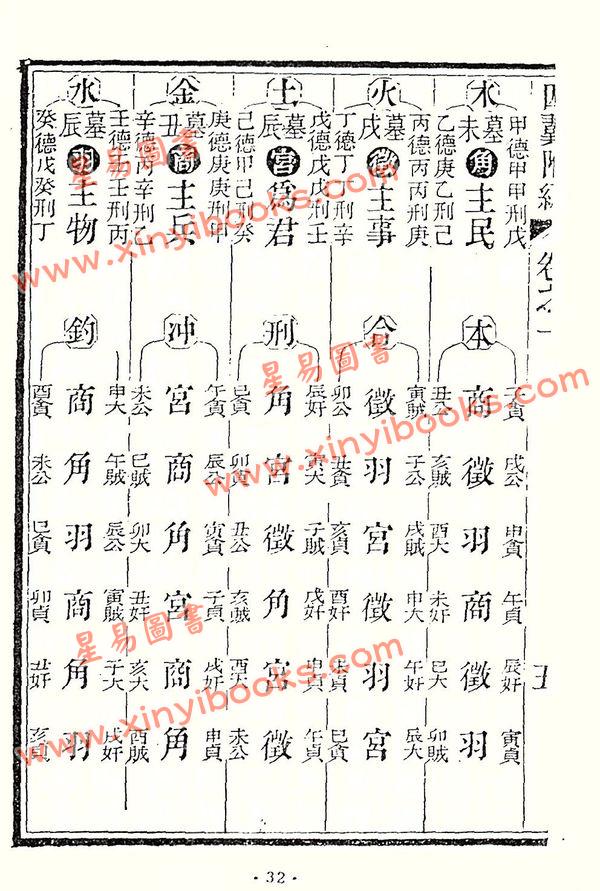 卷之一
五
木
甲德甲甲刑戊
墓未
角主民
乙德庚乙刑己
火
丙德丙丙刑庚
墓戌
徵主事
丁德丁丁刑辛
土
戊德戊戊刑壬
墓辰
宮爲君
己德甲己刑癸
金
庚德庚庚刑甲
墓丑
商主兵
辛德丙辛刑乙
水
壬德壬壬刑丙
墓辰
羽主物
癸德戊癸刑丁
本
子貪 戌公 申貪 午貞 辰奸 寅貞
商 徵 羽 商 徵 羽
丑公 亥賊 酉大 未奸 巳大 卯賊
合
寅賊 子公 戌賊 申大 午奸 辰大
徵 羽 宮 徵 羽 宮
卯公 丑貪 亥貪 酉奸 未貞 巳貪
刑
辰奸 寅大 子賊 戌奸 申貞 午貞
角 宮 徵 角 宮 徵
巳貪 卯貪 丑公 亥賊 酉大 未公
冲
午公 辰公 寅貪 子貞 戌奸 申貞
宮 商 角 宮 商 角
未公 巳賊 卯大 丑奸 亥大 酉賊
鈎
申大 午賊 辰公 寅賊 子大 戌奸
商 角 羽 商 角 羽
酉貪 未公 巳貪 卯貞 丑奸 亥貞
· 32 ·
星易圖書
www.xinyibooks.com
星易圖書
www.xinyibooks.com
星易圖書
www.xinyibooks.com